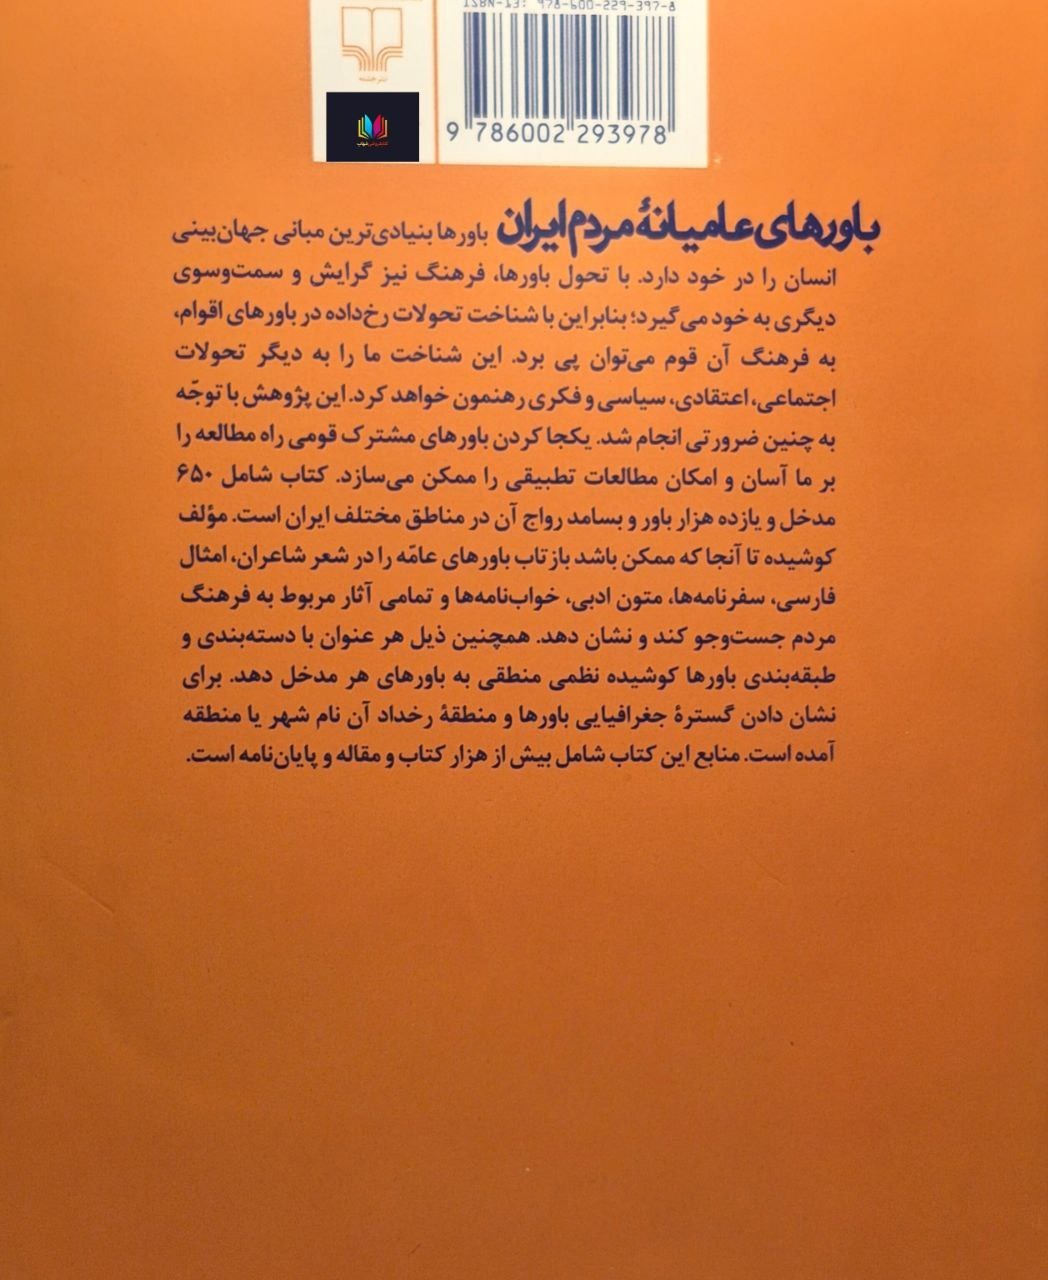 ISBN-13: 978-600-229-397-8
نشر چشمه
9 786002 293978
باورهای عامیانهٔ مردم ایران باورها بنیادی‌ترین مبانی جهان‌بینی
انسان را در خود دارد. با تحول باورها، فرهنگ نیز گرایش و سمت‌وسوی
دیگری به خود می‌گیرد؛ بنابراین با شناخت تحولات رخ‌داده در باورهای اقوام،
به فرهنگ آن قوم می‌توان پی برد. این شناخت ما را به دیگر تحولات
اجتماعی، اعتقادی، سیاسی و فکری رهنمون خواهد کرد. این پژوهش با توجّه
به چنین ضرورتی انجام شد. یکجا کردن باورهای مشترک قومی راه مطالعه را
بر ما آسان و امکان مطالعات تطبیقی را ممکن می‌سازد. کتاب شامل ۶۵۰
مدخل و یازده هزار باور و بسامد رواج آن در مناطق مختلف ایران است. مؤلف
کوشیده تا آنجا که ممکن باشد بازتاب باورهای عامّه را در شعر شاعران، امثال
فارسی، سفرنامه‌ها، متون ادبی، خواب‌نامه‌ها و تمامی آثار مربوط به فرهنگ
مردم جست‌وجو کند و نشان دهد. همچنین ذیل هر عنوان با دسته‌بندی و
طبقه‌بندی باورها کوشیده نظمی منطقی به باورهای هر مدخل دهد. برای
نشان دادن گسترهٔ جغرافیایی باورها و منطقهٔ رخداد آن نام شهر یا منطقه
آمده است. منابع این کتاب شامل بیش از هزار کتاب و مقاله و پایان‌نامه است.